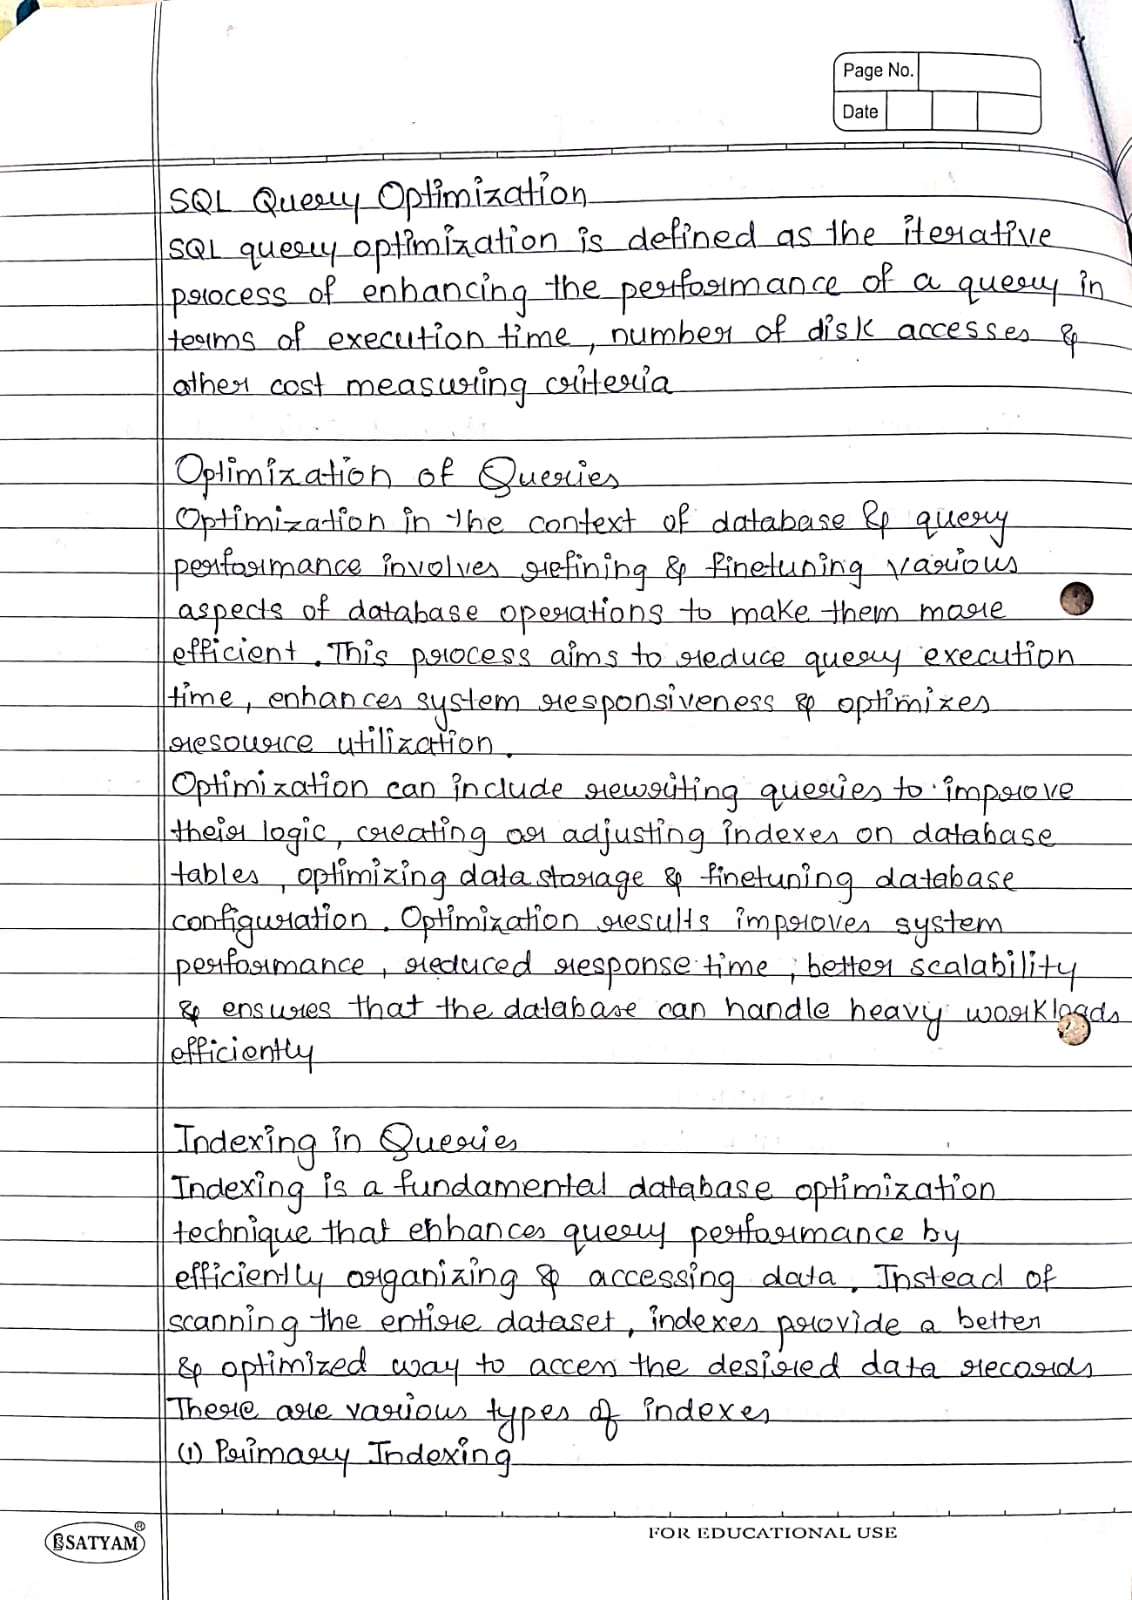 Page No.
Date
SQL Query Optimization
SQL query optimization is defined as the iterative
process of enhancing the performance of a query in
terms of execution time, number of disk accesses &
other cost measuring criteria
Optimization of Queries
Optimization in the context of database & query
performance involves refining & finetuning various
aspects of database operations to make them more
efficient. This process aims to reduce query execution
time, enhances system responsiveness & optimizes
resource utilization.
Optimization can include rewriting queries to improve
their logic, creating or adjusting indexes on database
tables, optimizing data storage & finetuning database
configuration. Optimization results improves system
performance, reduced response time, better scalability
& ensures that the database can handle heavy workloads
efficiently
Indexing in Queries
Indexing is a fundamental database optimization
technique that enhances query performance by
efficiently organizing & accessing data. Instead of
scanning the entire dataset, indexes provide a better
& optimized way to access the desired data records
There are various types of indexes
(1) Primary Indexing
SATYAM®
FOR EDUCATIONAL USE